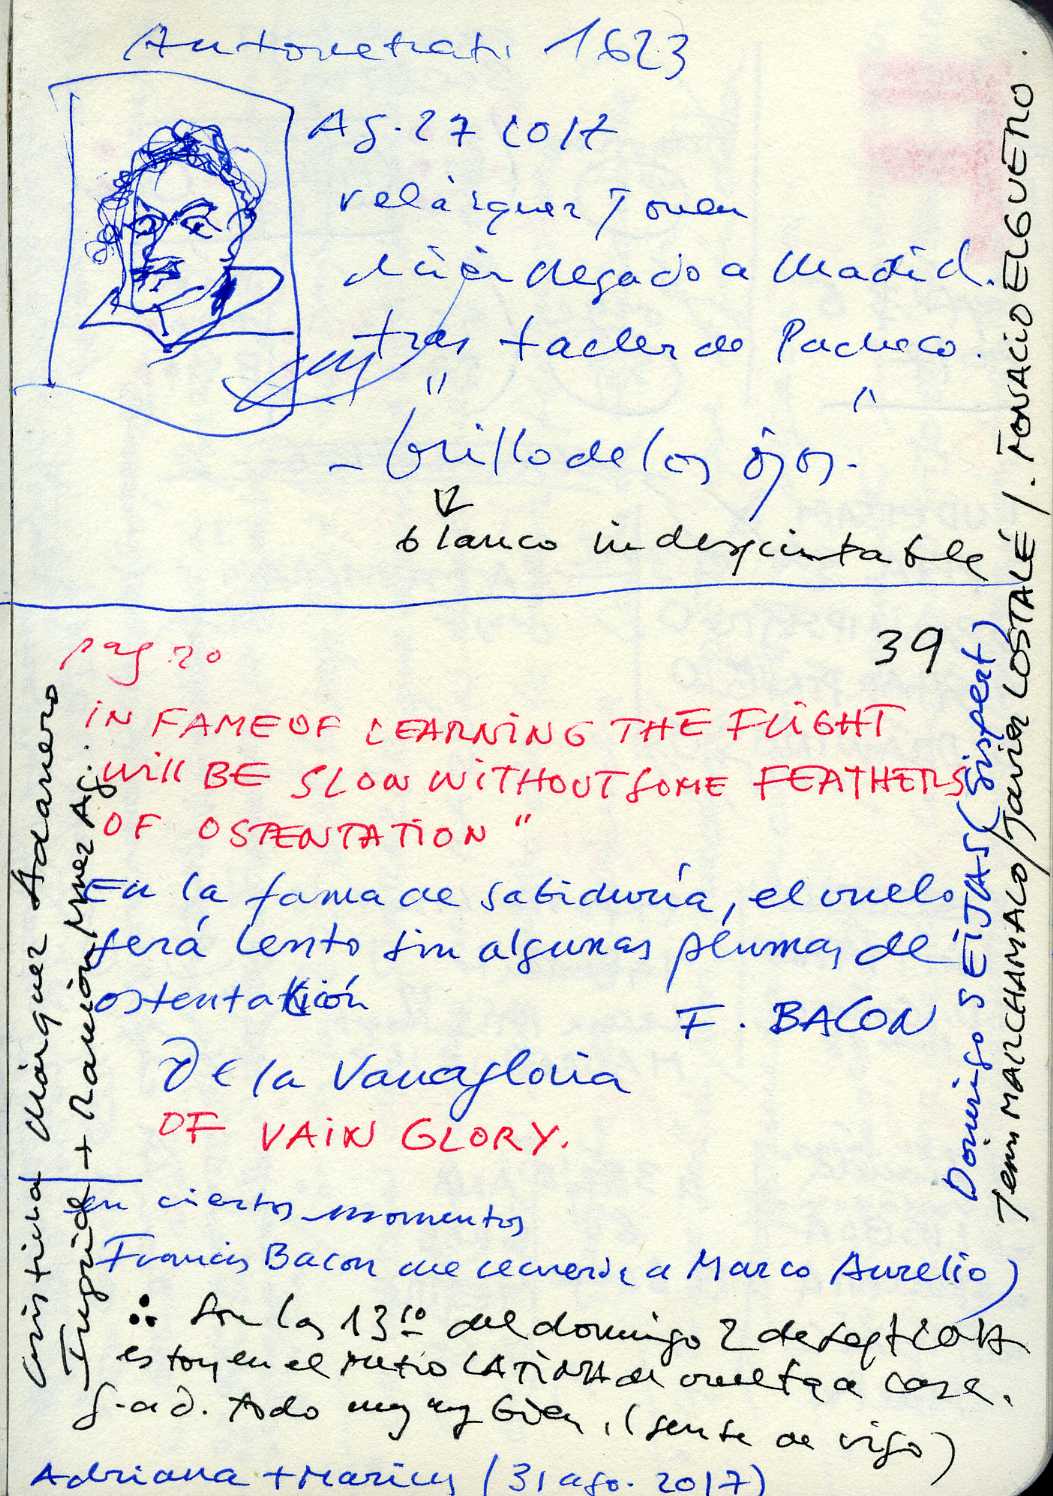 Autorretrato 1623
Ag. 27 2017
Velázquez Joven
recién llegado a Madrid.
tras taller de Pacheco.
" "
- brillo de los ojos.
blanco
39
pag. 20
IN FAME OF LEARNING THE FLIGHT
Will BE SLOW WITHOUT SOME FEATHERS
OF OSTENTATION "
En la fama de sabiduría, el vuelo
será lento sin algunas plumas de
ostentación
F. BACON
De la Vanagloria
OF VAIN GLORY.
en ciertos momentos
Francis Bacon me recuerda a Marco Aurelio)
Son las 13 10 del domingo 2 de sept 2017
estoy en el metro LATINA de vuelta a casa.
G.a.D. todo muy muy bien. (gente de vigo)
Adriana + (31 ago. 2017)
Cristina Márquez Adanero
Ingrid + Ramón Ag.
Domingo SEIJAS (Gispert)
MARCHAMALO / Javier LOSTALÉ / IGNACIO ELGUERO.